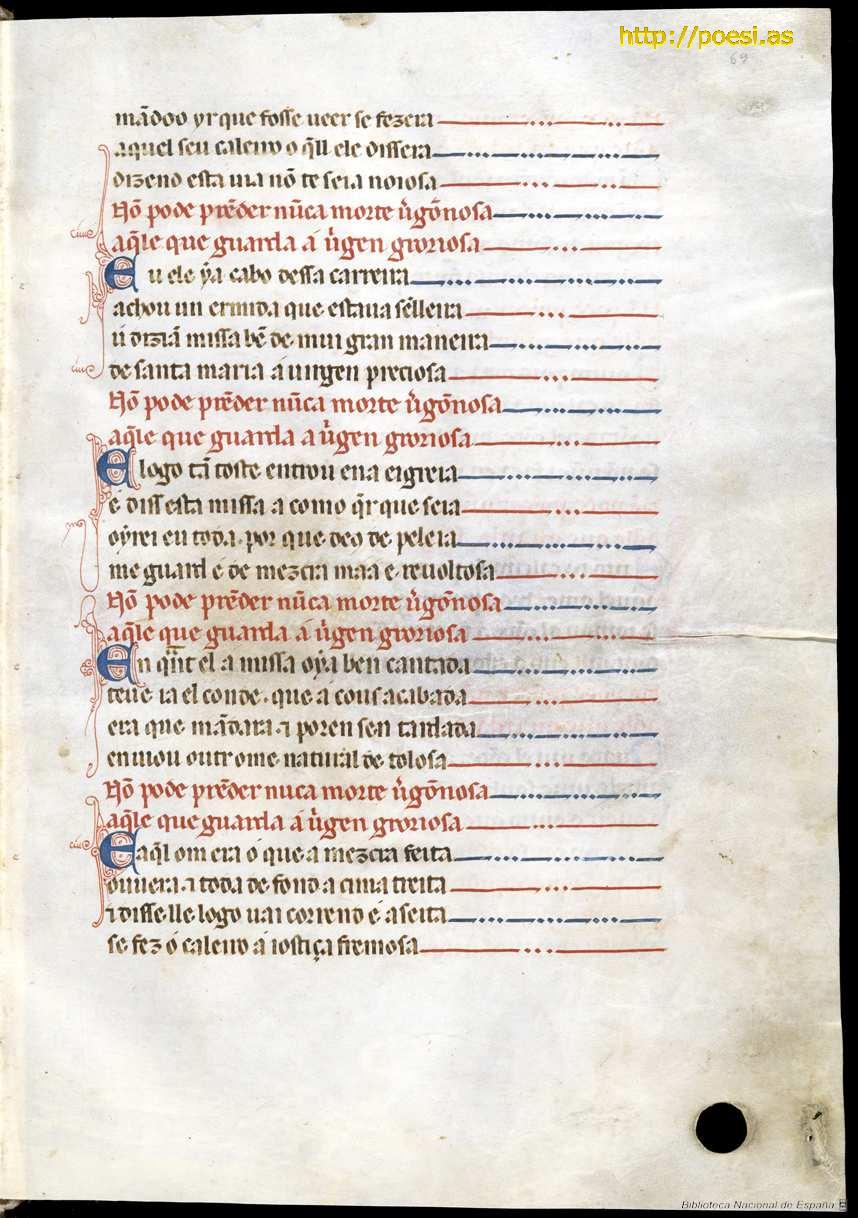 http://poesi.as
69
mãdoo yr que fosse ueer se fezera
aquel seu caleiro o q̃ll ele dissera
dizend esta uia nõ te seia noiosa
Nõ pode prẽder nũca morte ũgõnosa
aq̃le que guarda á ũgen groriosa
E u ele ya cabo dessa carreira
achou un ermida que estaua senlleira
ú diziã missa bẽ de mui gran maneira
de santa maria á uirgen preciosa
Nõ pode prẽder nũca morte ũgõnosa
aq̃le que guarda a ũgen groriosa
E logo tã toste entrou ena eigreia
é diss esta missa a como q̃r que seia
oyrei eu toda. por que deo de peleia
me guard e de mezcra maa e reuoltosa
Nõ pode prẽder nũca morte ũgõnosa
aq̃le que guarda á ũgen groriosa
En quãt el a missa oya ben cantada
teue ia el conde. que á cous acabada
era que mãdara. ⁊ poren sen tardada
enuiou outr ome natural de tolosa
Nõ pode prẽder nuca morte ũgõnosa
aq̃le que guarda á ũgen groriosa
E aq̃l om era o que a mezcra feita
ouuera. ⁊ toda de fond a cima treita
⁊ disse.lle logo uai corrend e aseita
se fez ó caleiro á iostiça fremosa
Biblioteca Nacional de España